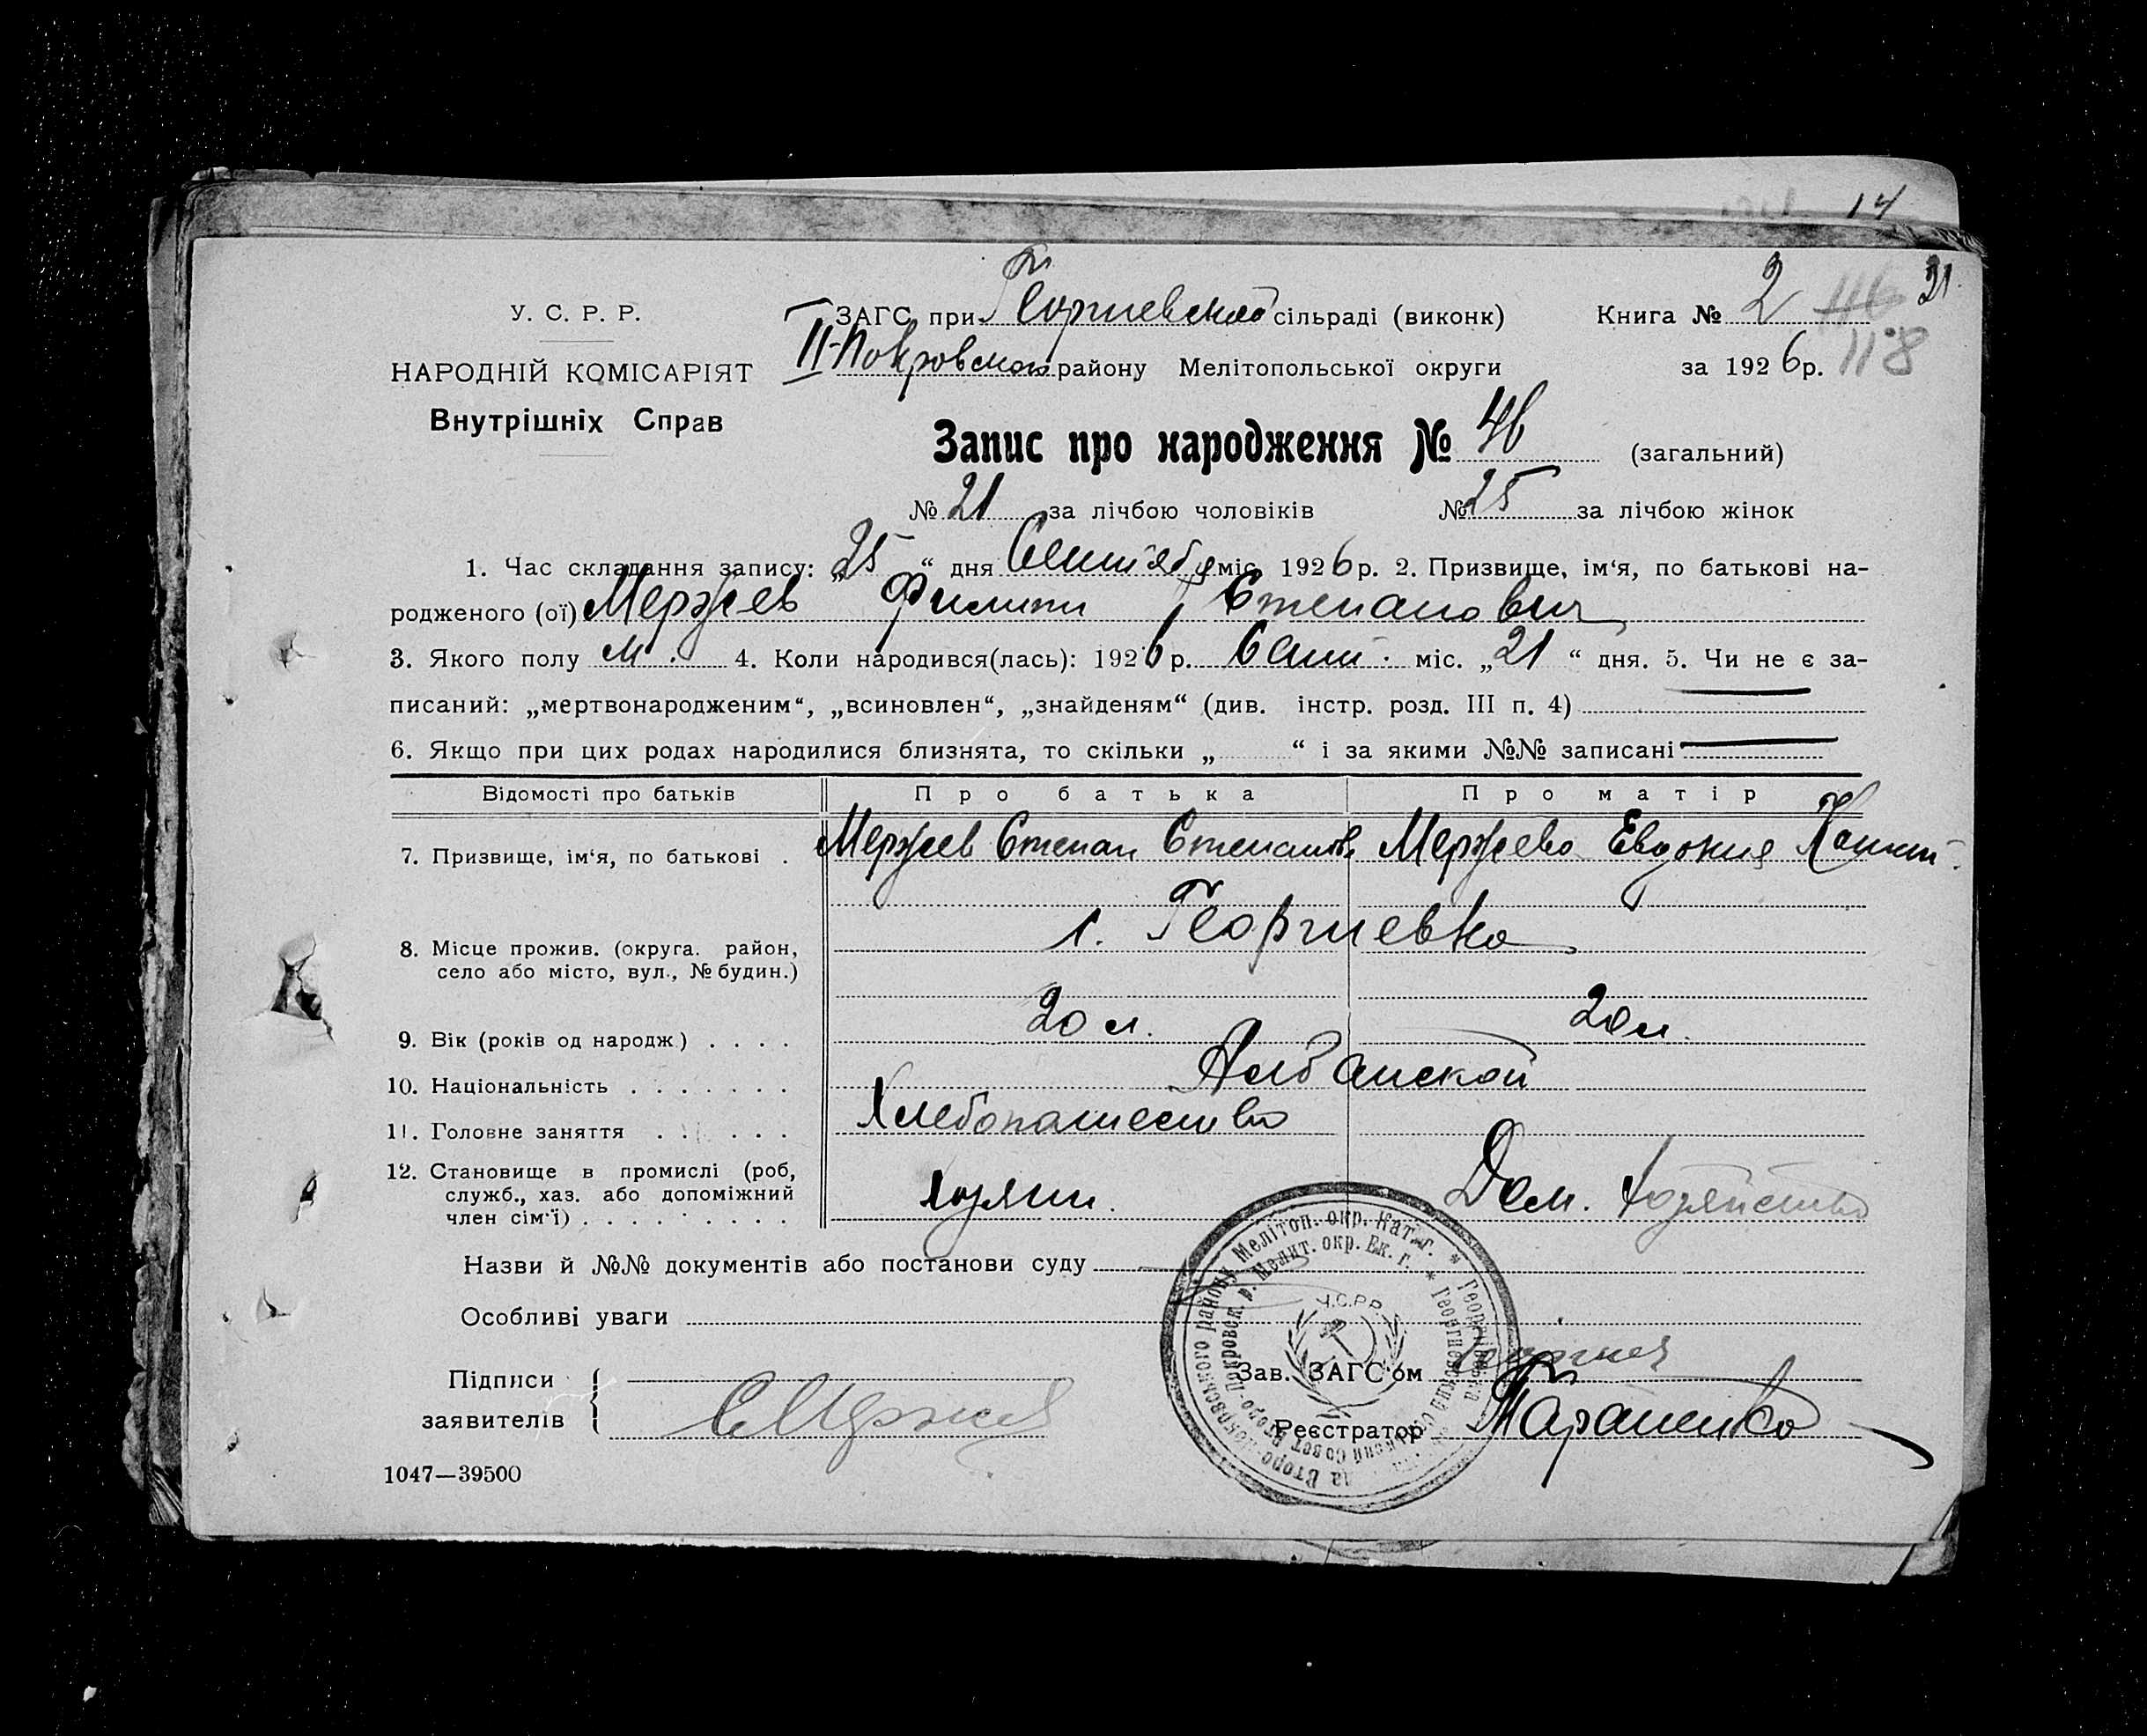 14
У. С. Р. Р.
ЗАГС при Георгиевской сільраді (виконк)
Книга № 2 116 21.
НАРОДНІЙ КОМІСАРІЯТ
II-Покровского району Мелітопольської округи
за 1926 р. 118
Внутрішніх Справ
Запис про народження № 46 (загальний)
№ 21 за лічбою чоловіків № 25 за лічбою жінок
1. Час складання запису: „25“ дня Сентября міс. 1926 р. 2. Призвище, ім‘я, по батькові на-
родженого (ої) Мержев Филипп Степанович
3. Якого полу м. 4. Коли народився(лась): 1926 р. Сент. міс. „21“ дня. 5. Чи не є за-
писаний: „мертвонародженим“, „всиновлен“, „знайденям“ (див. інстр. розд. III п. 4)
6. Якщо при цих родах народилися близнята, то скільки „ “ і за якими №№ записані
Відомості про батьків Про батька Про матір
7. Призвище, ім‘я, по батькові . Мержев Степан Степанов Мержева Евдокия
8. Місце прожив. (округа. район, с. Георгиевка
село або місто, вул., № будин.)
9. Вік (років од народж) . . . . 20 л. 20 л.
10. Національність . . . . . . . Албанской
11. Головне заняття . . . . . . Хлебопашество
12. Становище в промислі (роб, хозяин. Дом. хозяйство
служб., хаз. або допоміжний
член сім‘ї) . . . . . . . . .
Назви й №№ документів або постанови суду
Особливі уваги
Підписи
заявителів С Мержев
Зав. ЗАГС‘ом
Реєстратор Тараненко
У.С.Р.Р.
1047—39500